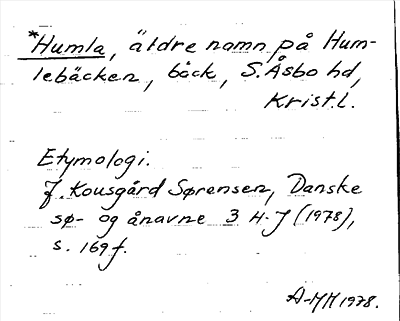 *Humla, äldre namn på Hum-
lebäcken, bäck, S. Åsbo hd,
Krist. l.
Etymologi.
J. Kousgård Sørensen, Danske
sø- og ånavne 3 H-J (1978),
s. 169 f.
A-MH 1978.